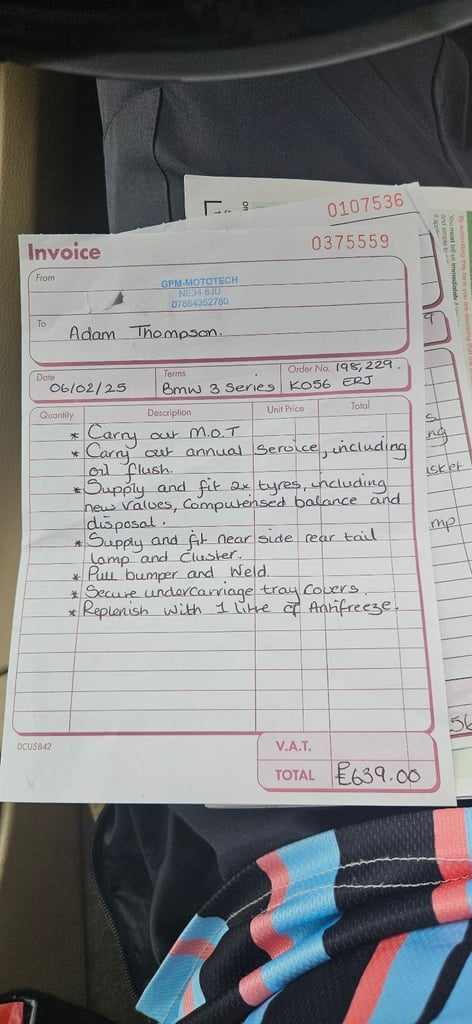 0107536
Invoice
0375559
From
GPM-MOTOTECH
NE34 8JU
07864352780
To
Adam Thompson.
Date
06/02/25
Terms
Bmw 3 Series
Order No. 198,229.
KO56 ERJ
Quantity Description Unit Price Total
* Carry out M.O.T
* Carry out annual Service, including
oil flush.
* Supply and fit 2x tyres, including
new values, Computerised balance and
disposal.
* Supply and fit near side rear tail
lamp and Cluster.
* Pull bumper and Weld.
* Secure undercarriage tray covers.
* Replenish with 1 litre of Antifreeze.
DCU5842
V.A.T.
TOTAL £639.00